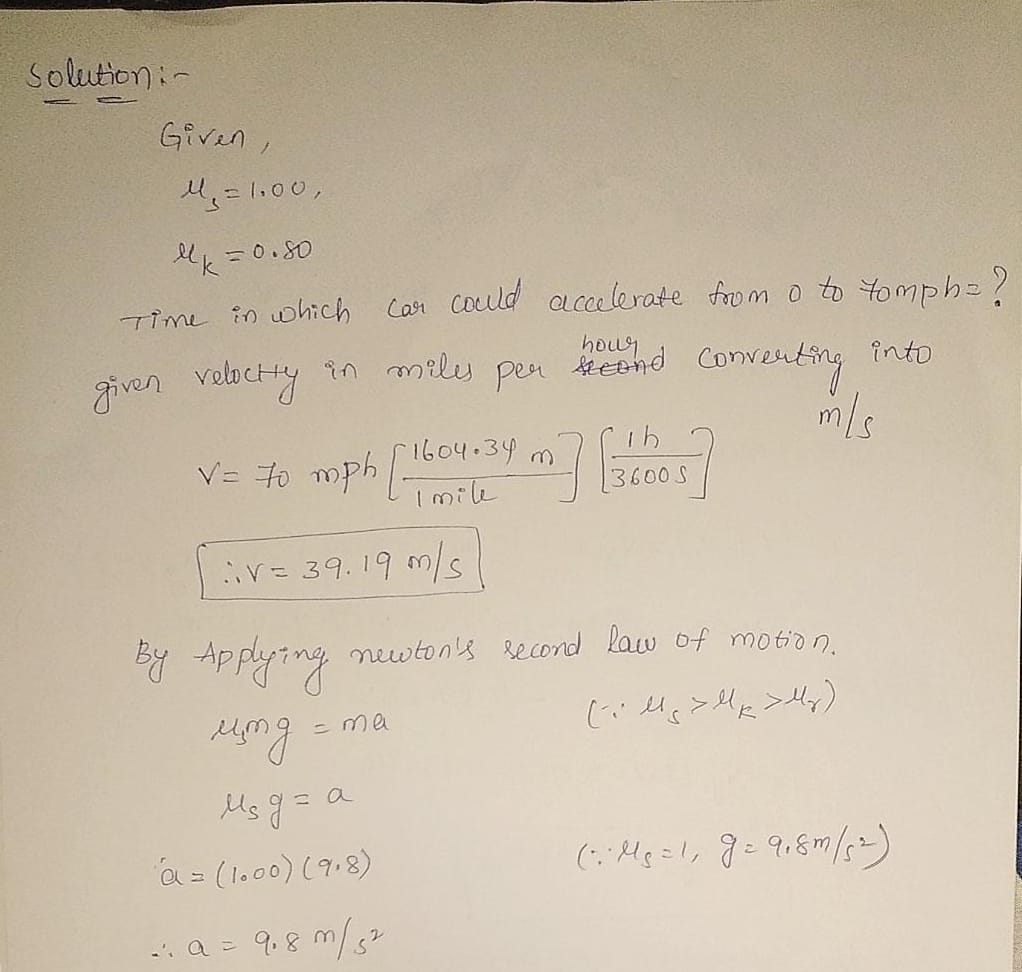 Solution:-
Given,
μs = 1.00,
μk = 0.80
Time in which car could accelerate from 0 to 70mph=?
given velocity in miles per second hour converting into m/s
V= 70 mph [1604.34 m / 1 mile] [1h / 3600 s]
∴V= 39.19 m/s
By Applying newton's second law of motion.
μsmg = ma (∵ μs > μk > μr)
μsg = a
a = (1.00) (9.8) (∵ μs=1, g= 9.8m/s²)
∴ a = 9.8 m/s²